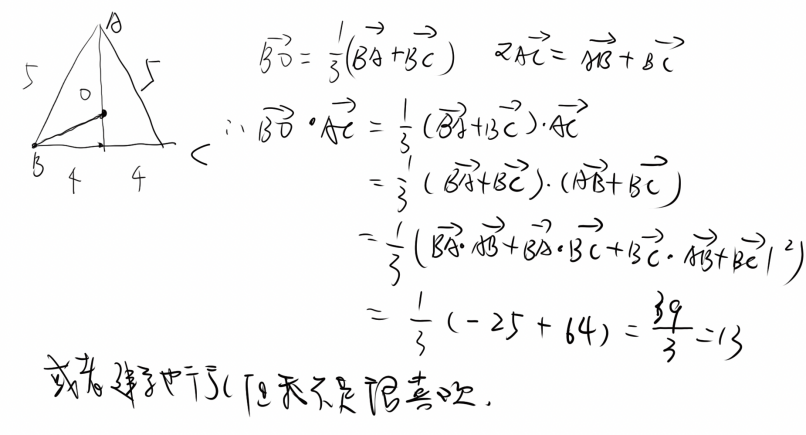 A
5 5
O
B C
4 4
$\overrightarrow{BO} = \frac{1}{3}(\overrightarrow{BA}+\overrightarrow{BC})$ $2\overrightarrow{AC} = \overrightarrow{AB}+\overrightarrow{BC}$
$\therefore \overrightarrow{BO} \cdot \overrightarrow{AC} = \frac{1}{3}(\overrightarrow{BA}+\overrightarrow{BC})\cdot\overrightarrow{AC}$
$= \frac{1}{3}(\overrightarrow{BA}+\overrightarrow{BC})\cdot(\overrightarrow{AB}+\overrightarrow{BC})$
$= \frac{1}{3}(\overrightarrow{BA}\cdot\overrightarrow{AB}+\overrightarrow{BA}\cdot\overrightarrow{BC}+\overrightarrow{BC}\cdot\overrightarrow{AB}+\overrightarrow{BC}|^2)$
$= \frac{1}{3}(-25+64) = \frac{39}{3} = 13$
或者建系也行(但我不是很喜欢.